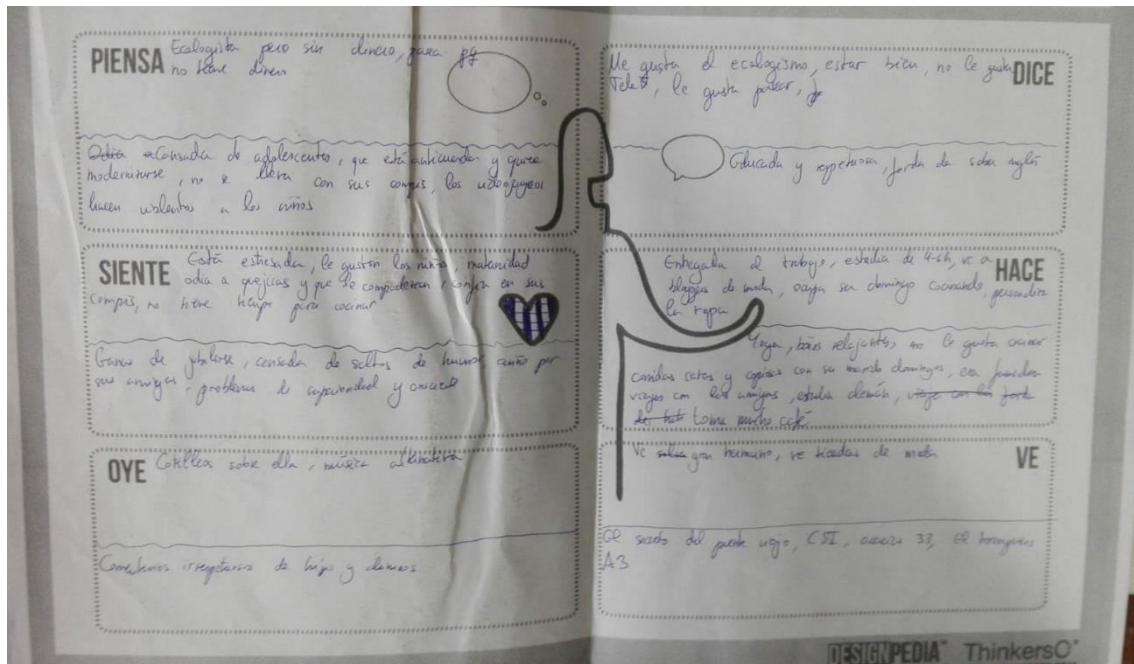 PIENSA
Ecologista pero sin dinero, para
no tiene dinero
Cansada de adolescentes, que está anticuada y quiere
modernizarse, no se lleva con sus compis, los videojuegos
hacen violentos a los niños
SIENTE
Está estresada, le gustan los niños, maternidad
odia a quejicas y que se compadezcan, confía en sus
compis, no tiene tiempo para cocinar
Ganas de jubilarse, cansada de saltos de humor, cariño por
sus amigas, problemas de superioridad y
OYE
Cotilleos sobre ella, música alternativa
Comentarios irrespetuosos de hijos y alumnos
DICE
Me gusta el ecologismo, estar bien, no le gusta
Tele5, le gusta pasear,
Educada y respetuosa, de saber inglés
HACE
Entregada al trabajo, estudia de 4-6h, ve a
bloggers de moda, ocupa su domingo cocinando, personaliza
la ropa
Yoga, baños relajantes, no le gusta cocinar
comidas y con su marido domingos,
viajes con las amigas, estudia alemán,
toma mucho café
VE
Ve gran hermano, ve tiendas de moda
El secreto del puente viejo, CSI, 33, El hormiguero
A3
DESIGNPEDIA™ ThinkersCo